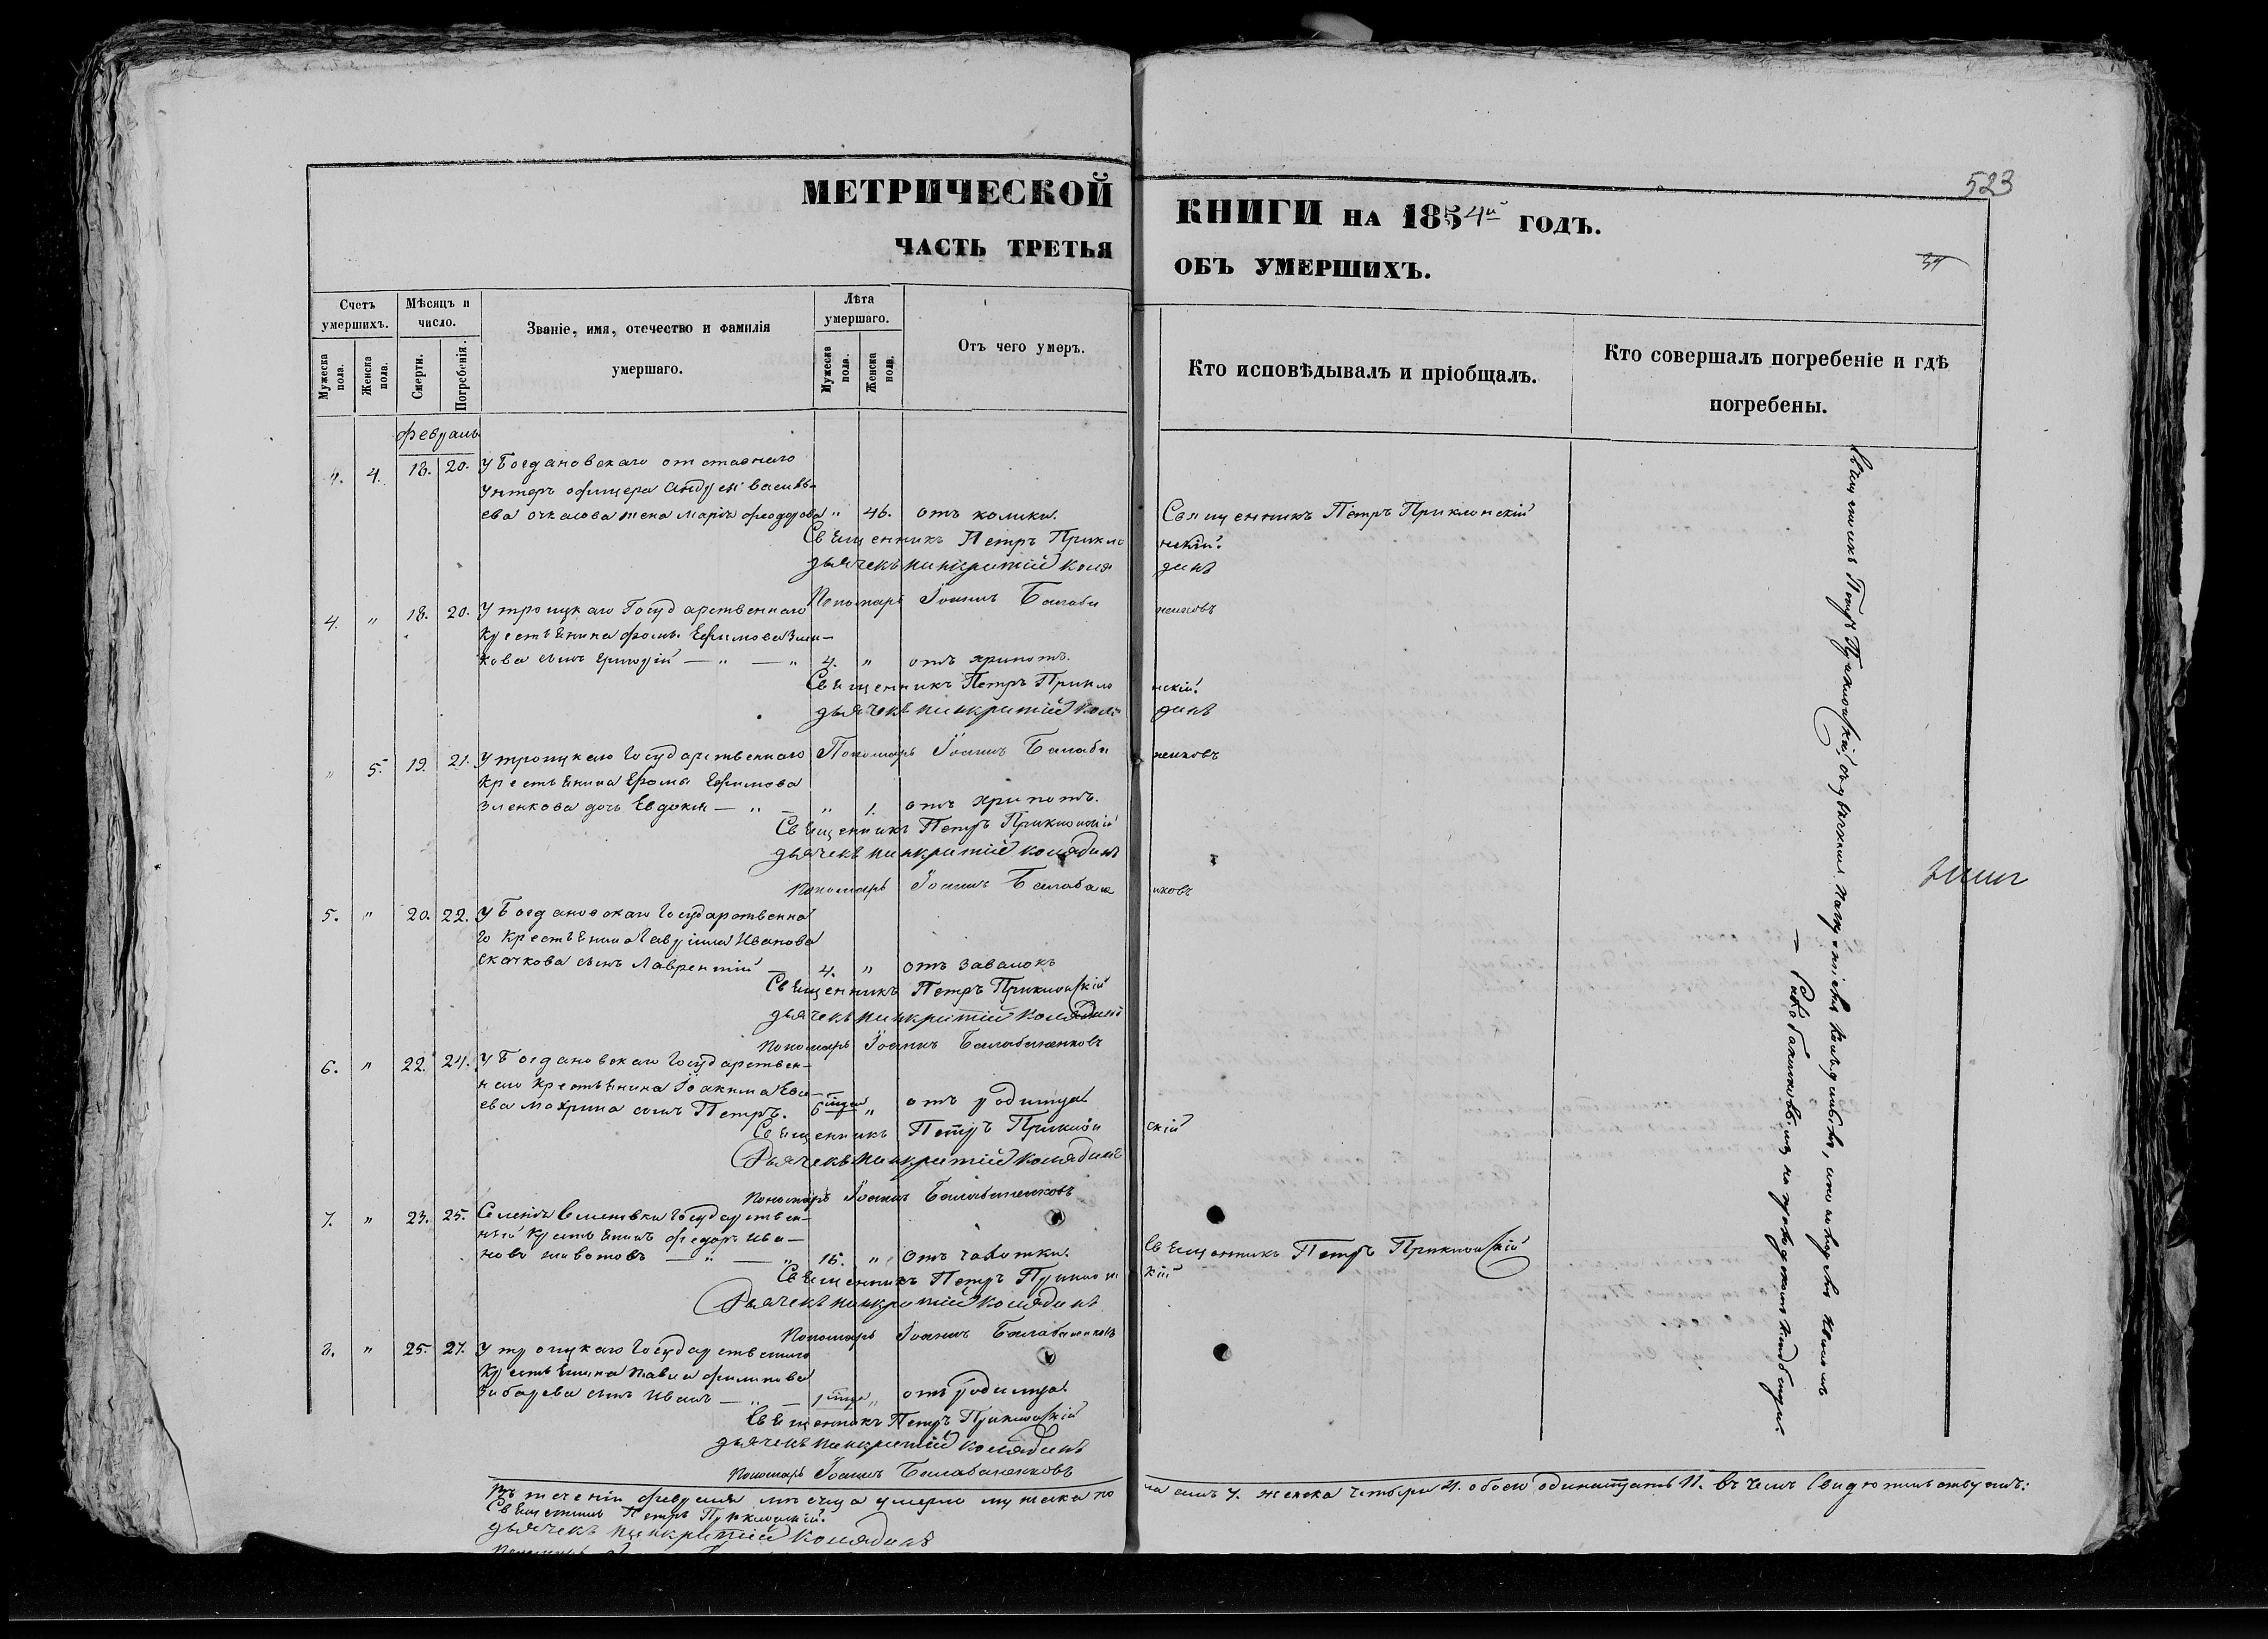 523
МЕТРИЧЕСКОЙ КНИГИ НА 1854й ГОДЪ.
ЧАСТЬ ТРЕТЬЯ ОБЪ УМЕРШИХЪ.
Счетъ умершихъ.
Мужеска пола.
Женска пола.
Мѣсяцъ и число.
Смерти.
Погребенія.
Званіе, имя, отечество и фамилія умершаго.
Лѣта умершаго.
Мужеска пола.
Женска пола.
Отъ чего умеръ.
Кто исповѣдывалъ и пріобщалъ.
Кто совершалъ погребеніе и гдѣ погребены.
февраль
4. 18. 20. У Богдановскаго отставнаго
унтеръ офицера Андрея Василь-
ева Очкасова жена Марія Феодорова " 46. отъ колики. Священникъ Петръ Приклонскій
Священникъ Петръ Приклонскій.
дьячекъ Панкратій Колядинъ
Пономарь Іоаннъ Балабаненковъ
4. " 18. 20. У троицкаго Государственнаго
крестьянина Фомы Ефимова
сынъ Григорій — " — " 4. " отъ хрипотъ.
Священникъ Петръ Приклонскій.
дьячекъ Панкратій Колядинъ
Пономарь Іоаннъ Балабаненковъ
" 5. 19. 21. У троицкаго Государственнаго
крестьянина Фомы Ефимова
Зленкова дочь Евдокія — " — " 1. отъ хрипотъ.
Священникъ Петръ Приклонскій
дьячекъ Панкратій Колядинъ
Пономарь Іоаннъ Балабаненковъ
5. " 20. 22. У Богдановскаго Государственна
го крестьянина Гавріила Иванова
Скачкова сынъ Лаврентій — 4. " отъ завалокъ
Священникъ Петръ Приклонскій
дьячекъ Панкратій Колядинъ
Пономарь Іоаннъ Балабаненковъ
6. " 22. 24. У Богдановскаго Государствен-
наго крестьянина Іоакима
Махрина сынъ Петръ. " отъ родимца
Священникъ Петръ Приклонскій
Дьячекъ Панкратій Колядинъ
Пономарь Іоаннъ Балабаненковъ
7. " 23. 25. Семеновки Государствен-
ный крестьянинъ Федоръ Ива-
новъ — " — " 15. " Отъ чахотки. Священникъ Петръ Приклонскій
Священникъ Петръ Приклонскій
Дьячекъ Панкратій Колядинъ
Пономарь Іоаннъ Балабаненковъ
8. " 25. 27. У троицкаго Государственнаго
крестьянина Павла Филипова
Зибарева сынъ Иванъ — " — " отъ родимца.
Священникъ Петръ Приклонскій
дьячекъ Панкратій Колядинъ
Пономарь Іоаннъ Балабаненковъ
Въ теченіи февраля мѣсяца умерло мужеска по женска четыри 4. обоего одинатцать 11. въ чемъ свидѣтельствуемъ:
Священникъ Петръ Приклонскій.
дьячекъ Панкратій Колядинъ
Священникъ Петръ Приклонскій съ дьячкомъ Панкратіемъ Колядинымъ, и пономаремъ Іоанномъ
Балабаненковымъ на приходскомъ кладбищѣ.